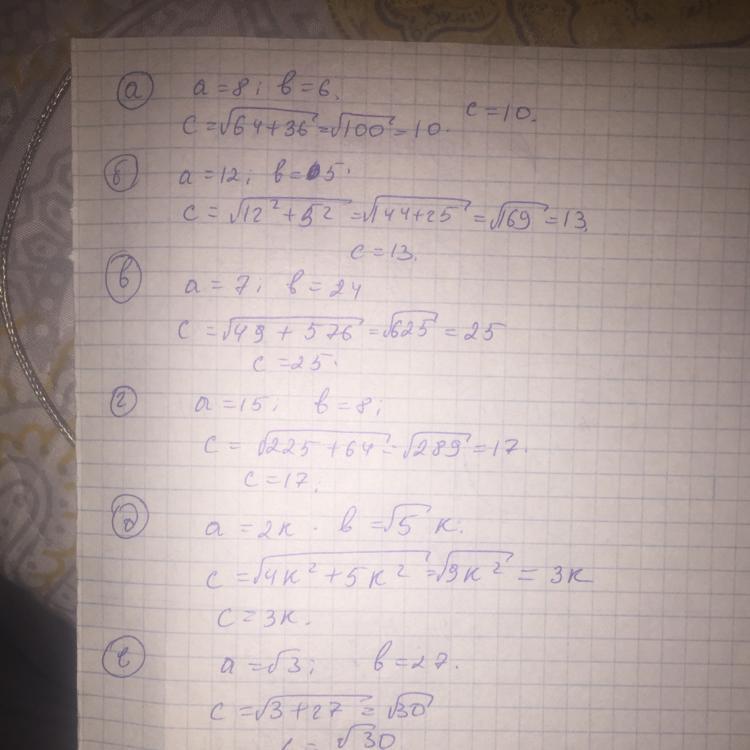 а) a = 8; b = 6.
c = √64+36 = √100 = 10. c = 10.
б) a = 12; b = 5.
c = √12² + 5² = √144+25 = √169 = 13.
c = 13.
в) a = 7; b = 24
c = √49 + 576 = √625 = 25
c = 25.
г) a = 15; b = 8;
c = √225 + 64 = √289 = 17.
c = 17;
д) a = 2к. b = √5 к.
c = √4к² + 5к² = √9к² = 3к
c = 3к.
е) a = √3; b = 27.
c = √3+27 = √30
c = √30